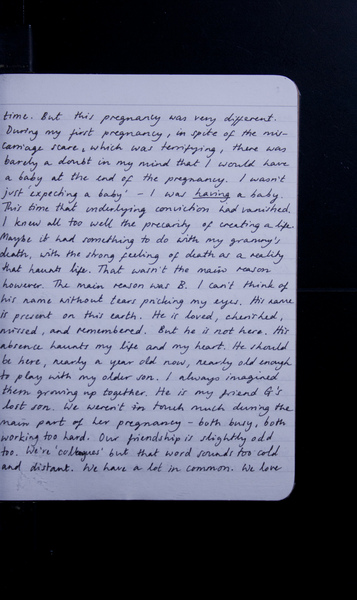 time. But this pregnancy was very different.
During my first pregnancy, in spite of the mis-
carriage scare, which was terrifying, there was
barely a doubt in my mind that I would have
a baby at the end of the pregnancy. I wasn't
just 'expecting a baby' - I was having a baby.
This time that underlying conviction had vanished.
I knew all too well the precarity of creating a life.
Maybe it had something to do with my granny's
death, with the strong feeling of death as a reality
that haunts life. That wasn't the main reason
however. The main reason was B. I can't think of
his name without tears pricking my eyes. His name
is present on this earth. He is loved, cherished,
missed, and remembered. But he is not here. His
absence haunts my life and my heart. He should
be here, nearly a year old now, nearly old enough
to play with my older son. I always imagined
them growing up together. He is my friend G's
lost son. We weren't in touch much during the
main part of her pregnancy - both busy, both
working too hard. Our friendship is slightly odd
too. We're 'colleagues' but that word sounds too cold
and distant. We have a lot in common. We love